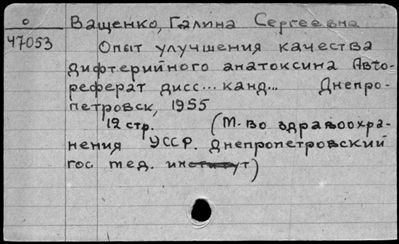 о Ващенко, Галина Сергеевна
47053 Опыт улучшения качества
дифтерийного анатоксина Авто-
реферат дисс... канд... Днепро-
петровск, 1955
12 стр. (М-во здравоохра-
нения УССР. Днепропетровский
гос мед. институт)